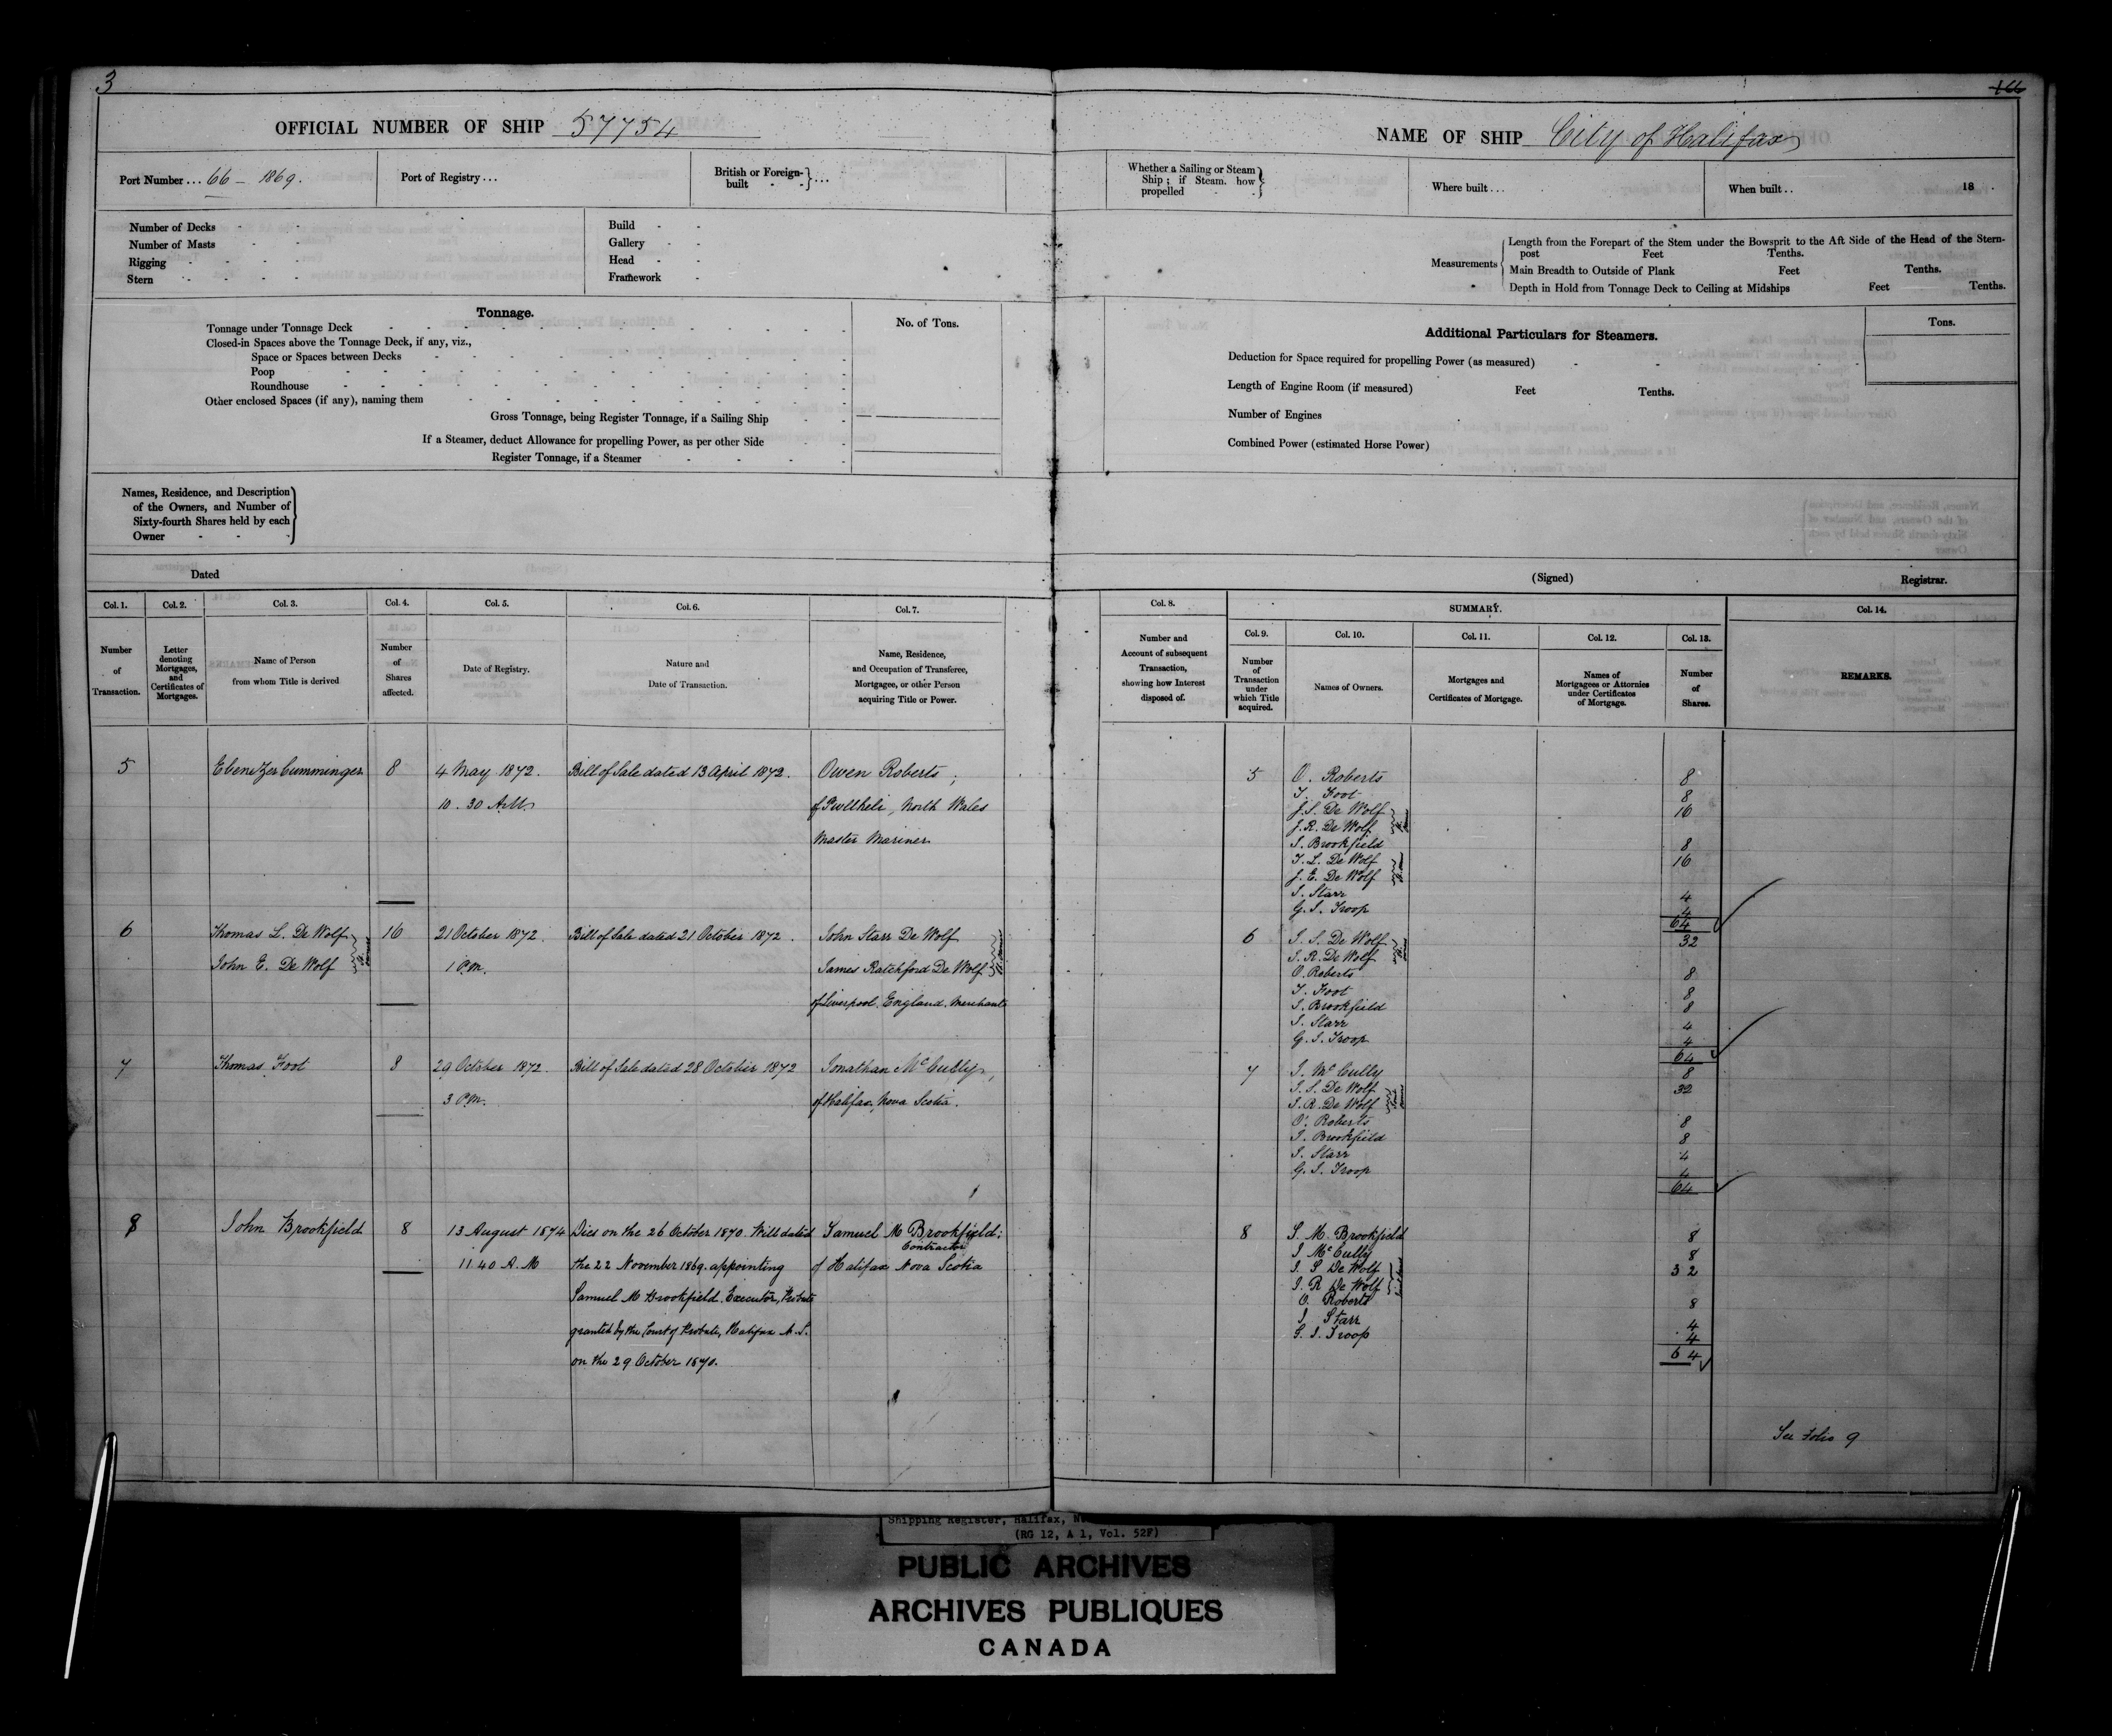 3
166
OFFICIAL NUMBER OF SHIP 57754
NAME OF SHIP City of Halifax
Port Number... 66 – 1869.
Port of Registry...
British or Foreign-built - -}...
Whether a Sailing or Steam Ship; if Steam. how propelled - -}
Where built...
When built.. 18 .
Number of Decks - -
Number of Masts - -
Rigging - - - -
Stern - - - -
Build - -
Gallery - -
Head - -
Framework -
Measurements
Length from the Forepart of the Stem under the Bowsprit to the Aft Side of the Head of the Stern-
post Feet Tenths.
Main Breadth to Outside of Plank Feet Tenths.
Depth in Hold from Tonnage Deck to Ceiling at Midships Feet Tenths.
Tonnage.
No. of Tons.
Tonnage under Tonnage Deck
Closed-in Spaces above the Tonnage Deck, if any, viz.,
Space or Spaces between Decks
Poop
Roundhouse
Other enclosed Spaces (if any), naming them
Gross Tonnage, being Register Tonnage, if a Sailing Ship
If a Steamer, deduct Allowance for propelling Power, as per other Side
Register Tonnage, if a Steamer
Additional Particulars for Steamers.
Tons.
Deduction for Space required for propelling Power (as measured)
Length of Engine Room (if measured) Feet Tenths.
Number of Engines
Combined Power (estimated Horse Power)
Names, Residence, and Description
of the Owners, and Number of
Sixty-fourth Shares held by each
Owner - - -
Dated
(Signed)
Registrar.
Col. 1.
Number
of
Transaction.
Col. 2.
Letter
denoting
Mortgages,
and
Certificates of
Mortgages.
Col. 3.
Name of Person
from whom Title is derived
Col. 4.
Number
of
Shares
affected.
Col. 5.
Date of Registry.
Col. 6.
Nature and
Date of Transaction.
Col. 7.
Name, Residence,
and Occupation of Transferee,
Mortgagee, or other Person
acquiring Title or Power.
Col. 8.
Number and
Account of subsequent
Transaction,
showing how Interest
disposed of.
SUMMARY.
Col. 9.
Number
of
Transaction
under
which Title
acquired.
Col. 10.
Names of Owners.
Col. 11.
Mortgages and
Certificates of Mortgage.
Col. 12.
Names of
Mortgagees or Attornies
under Certificates
of Mortgage.
Col. 13.
Number
of
Shares.
Col. 14.
REMARKS.
5 Ebenezer Cumminger 8 4 May 1872. Bill of Sale dated 13 April 1872. Owen Roberts,
10.30 A.M. of Pwllheli, North Wales
Master Mariner
5 O. Roberts 8
T. Foot 8
J. S. De Wolf 16
J. R. De Wolf
J. Brookfield 8
T. L. De Wolf 16
J. E. De Wolf
J. Starr 4
G. J. Troop 4
64
6 Thomas L. De Wolf 16 21 October 1872. Bill of Sale dated 21 October 1872. John Starr De Wolf
John E. De Wolf 1 P.M. James Ratchford De Wolf
of Liverpool. England. Merchants
6 J. S. De Wolf 32
J. R. De Wolf
O. Roberts 8
T. Foot 8
J. Brookfield 8
J. Starr 4
G. J. Troop 4
64
7 Thomas Foot 8 29 October 1872. Bill of Sale dated 28 October 1872 Jonathan McCully,
3 P.M. of Halifax, Nova Scotia.
7 J. McCully 8
J. S. De Wolf 32
J. R. De Wolf
O. Roberts 8
J. Brookfield 8
J. Starr 4
G. J. Troop 4
64
8 John Brookfield 8 13 August 1874 Dies on the 26 October 1870. Will dated Samuel M Brookfield;
Contractor
11.40 A.M the 22 November 1869. appointing of Halifax Nova Scotia
Samuel M Brookfield. Executor, Probate
granted by the Court of Probate, Halifax N.S.
on the 29 October 1870.
8 S. M. Brookfield 8
J McCully 8
J. S De Wolf 32
J. R De Wolf
O. Roberts 8
J. Starr 4
G. J. Troop 4
64
See Folio 9
Shipping Register, Halifax,
(RG 12, A 1, Vol. 52F)
PUBLIC ARCHIVES
ARCHIVES PUBLIQUES
CANADA